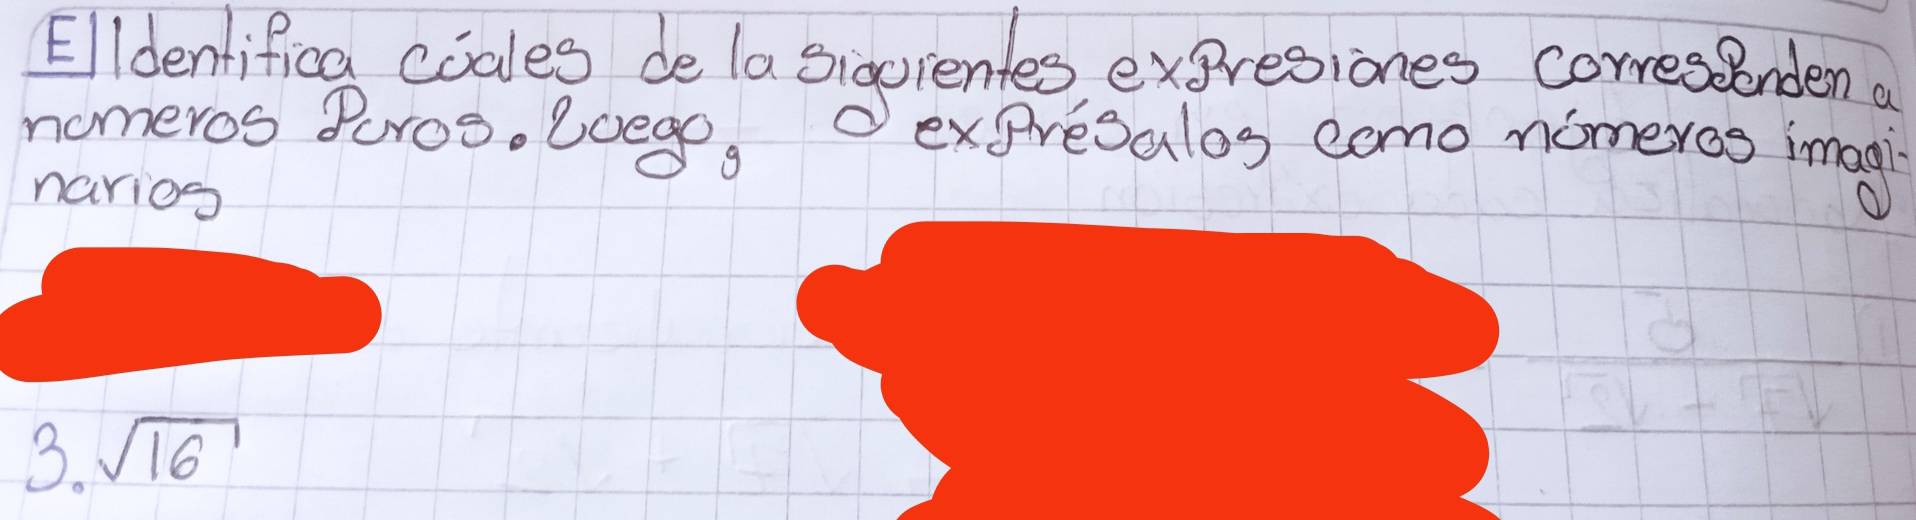 E Identifica cúales de la siguientes expresiones corresponden a
numeros Puros. Luego, exprésalos como números imagi-
narios
3. √16